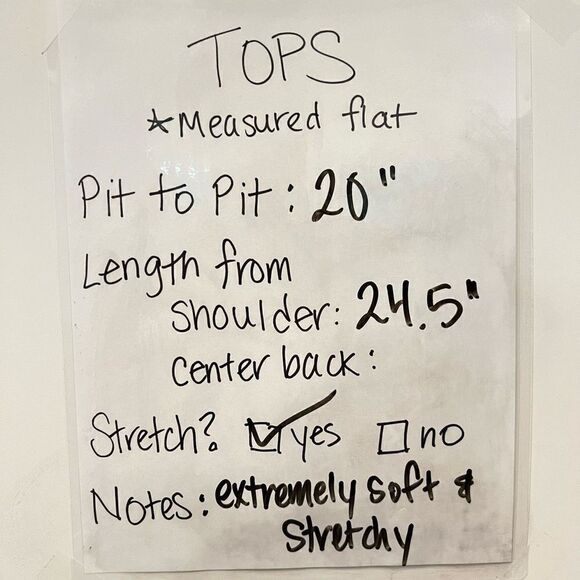 TOPS
*Measured flat
Pit to Pit: 20"
Length from
shoulder: 24.5"
center back:
Stretch? ☑ yes ☐ no
Notes: extremely soft &
stretchy